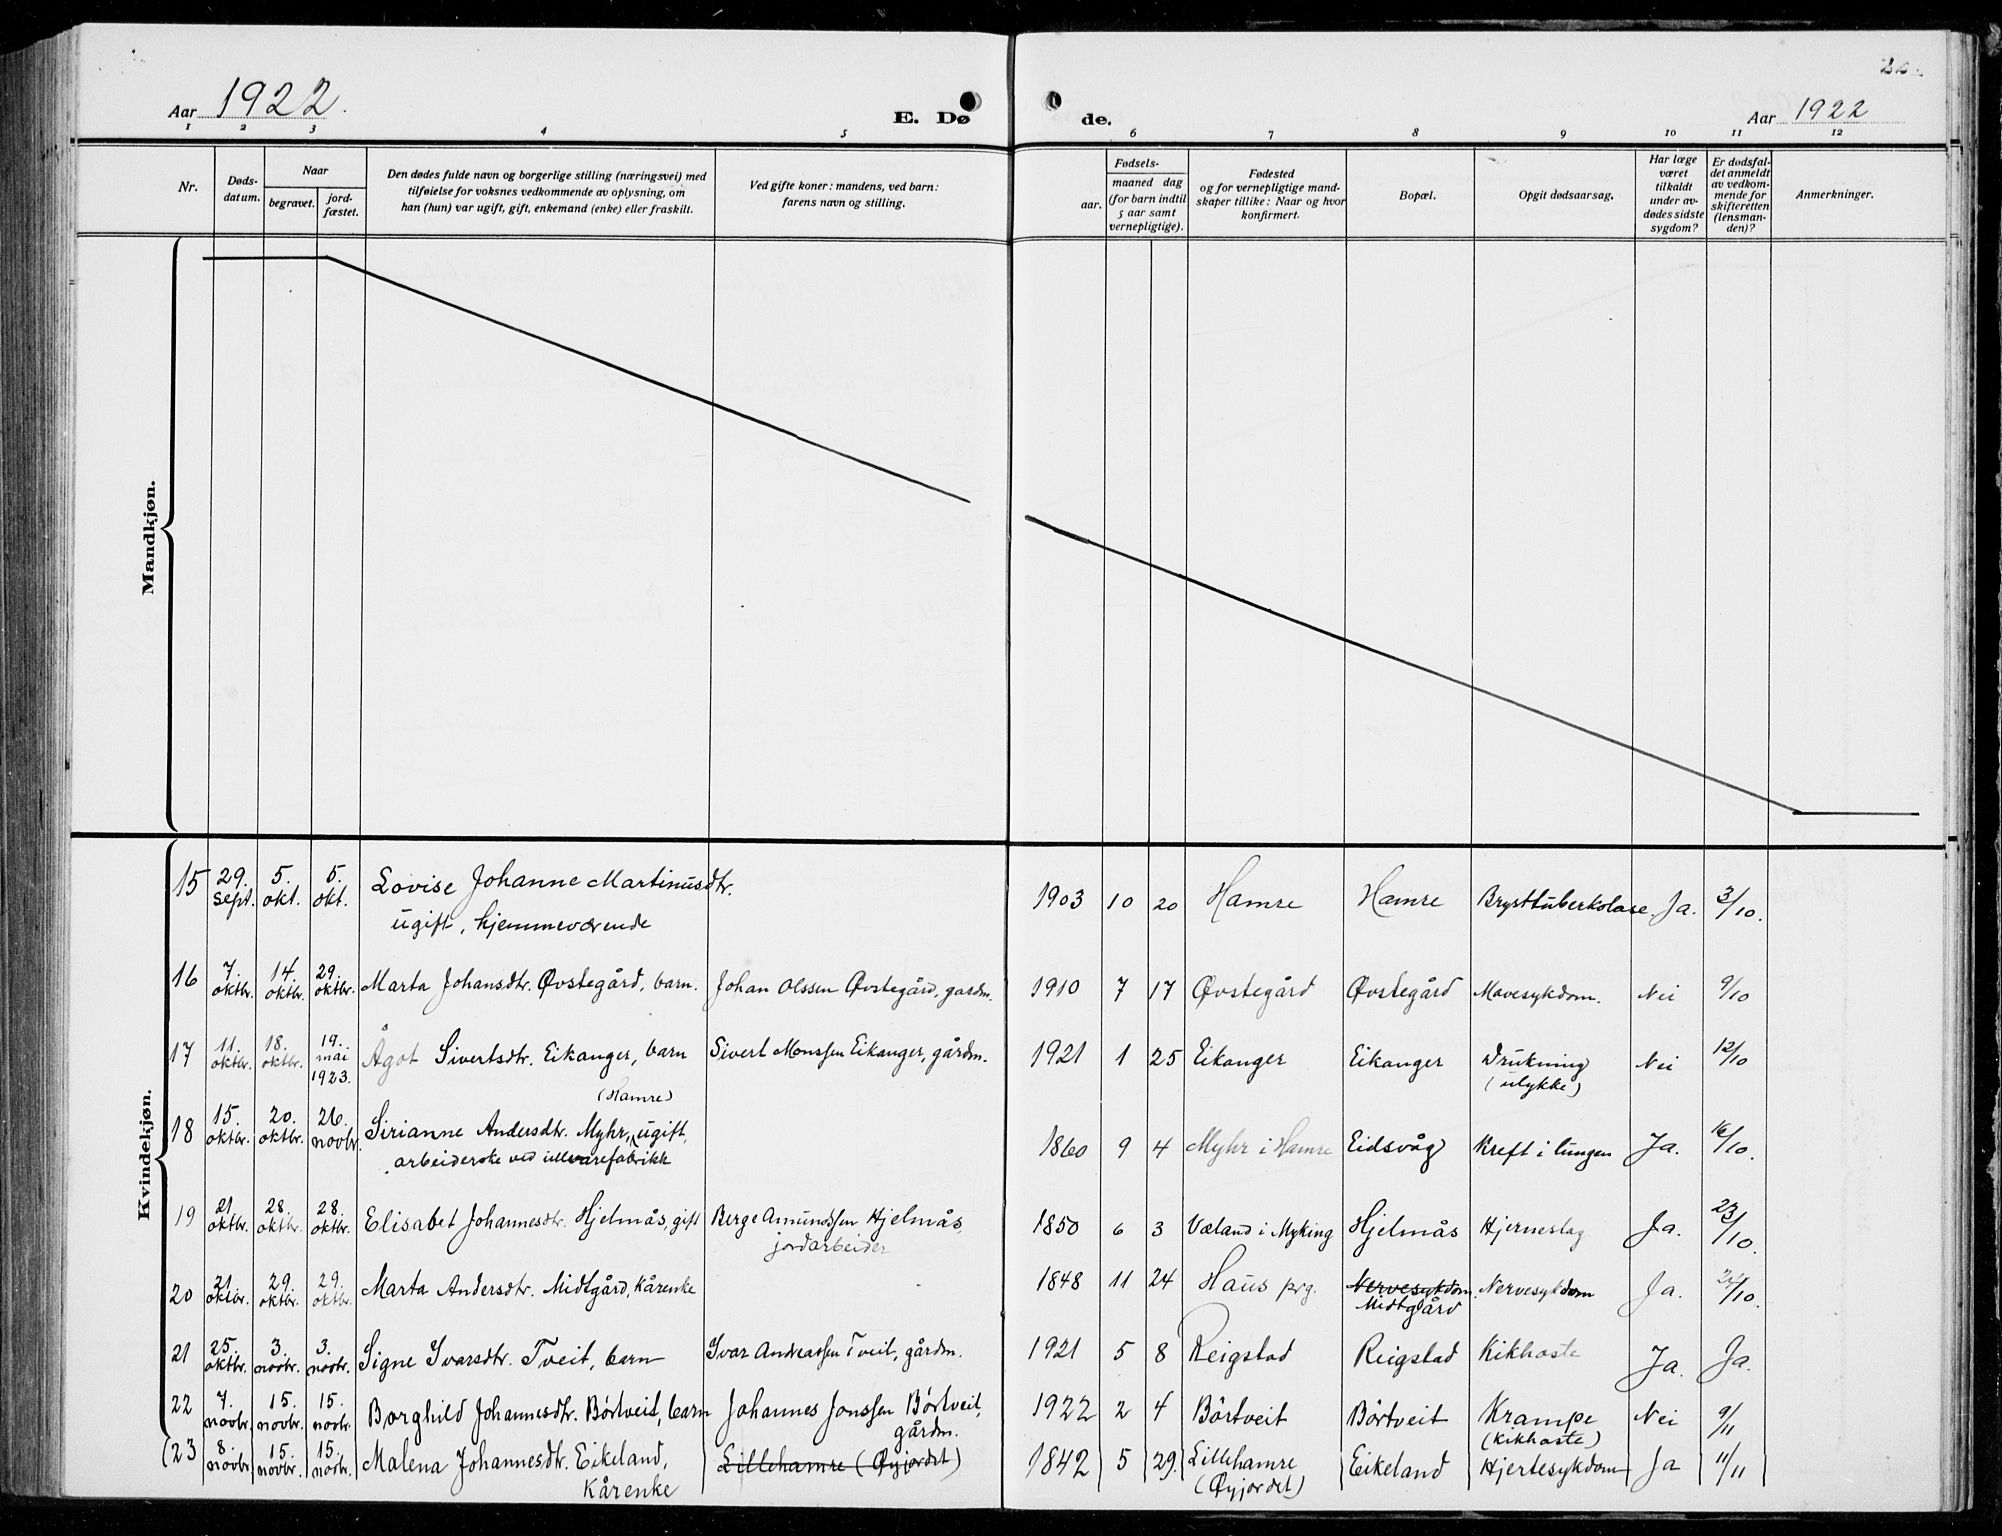 22
Aar 1922.
E. Dø
de.
Aar 1922
1 2 3 4 5 6 7 8 9 10 11 12
Nr.
Døds-
datum.
Naar
begravet.
jord-
fæstet.
Den dødes fulde navn og borgerlige stilling (næringsvei) med
tilføielse for voksnes vedkommende av oplysning, om
han (hun) var ugift, gift, enkemand (enke) eller fraskilt.
Ved gifte koner: mandens, ved barn:
farens navn og stilling.
Fødsels-
aar.
maaned dag
(for barn indtil
5 aar samt
vernepligtige).
Fødested
og for vernepligtige mand-
skaper tillike: Naar og hvor
konfirmert.
Bopæl.
Opgit dødsaarsag.
Har læge
været
tilkaldt
under av-
dødes sidste
sygdom?
Er dødsfal-
det anmeldt
av vedkom-
mende for
skifteretten
(lensman-
den)?
Anmerkninger.
Mandkjøn.
Kvindekjøn.
15 29. sept. 5. okt. 5. okt. Lovise Johanne Martinusdtr. 1903 10 20 Hamre Hamre Brysttuberkolose. Ja. 3/10.
ugift, hjemmeværende
16 7. oktbr. 14. oktbr. 29. oktbr. Marta Johansdtr. Øvstegård, barn. Johan Olssen Øvstegård, gardm. 1910 7 17 Øvstegård Øvstegård Mavesykdom. Nei 9/10
17 11. oktbr. 18. oktbr. 19. mai 1923. Ågot Sivertsdtr. Eikanger, barn Sivert Monssen Eikanger, gårdm. 1921 1 25 Eikanger Eikanger Drukning Nei 12/10
(ulykke)
(Hamre)
18 15. oktbr. 20. oktbr. 26. novbr. Sirianne Andersdtr. Myhr, ugift, 1860 9 4 Myhr i Hamre Eidsvåg Kreft i lungen Ja. 16/10.
arbeiderske ved ullvarefabrikk
19 21. oktbr. 28. oktbr. 28. oktbr. Elisabet Johannesdtr. Hjelmås, gift Berge Amundssen Hjelmås, 1850 6 3 Væland i Myking Hjelmås Hjerneslag Ja. 23/10.
jordarbeider
20 21. oktbr. 29. oktbr. 29. oktbr. Marta Andersdtr. Midtgård, Kårenke 1848 11 24 Haus prg. Nervesykdom. Nervesykdom Ja.
Midtgård
21 25. oktbr. 3. novbr. 3. novbr. Signe Ivarsdtr. Tveit, barn Ivar Andreassen Tveit, gårdm. 1921 5 8 Reigstad Reigstad Kikhoste Ja. Ja.
22 7. novbr. 15. novbr. 15. novbr. Borghild Johannesdtr. Börtveit, barn Johannes Jonssen Börtveit, 1922 2 4 Börtveit Börtveit Krampe Nei 9/11
gårdm. (Kikhoste)
(23 8. novbr. 15. novbr. 15. novbr. Malena Johannesdtr. Eikeland, Lillehamre (Øyjordet) 1842 5 29. Lillehamre Eikeland Hjertesykdom Ja 11/11
Kårenke (Øyjordet)